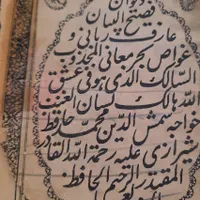 دیوان
فصیح اللسان
عارف ربانی و
غواص بحر معانی المجذوب
السالک الذی هو فی عشق
الله هالک لسان الغیب
خواجه شمس الدین محمد حافظ
شیرازی علیه رحمة الله القادر
المقتدر الرحیم الحافظ